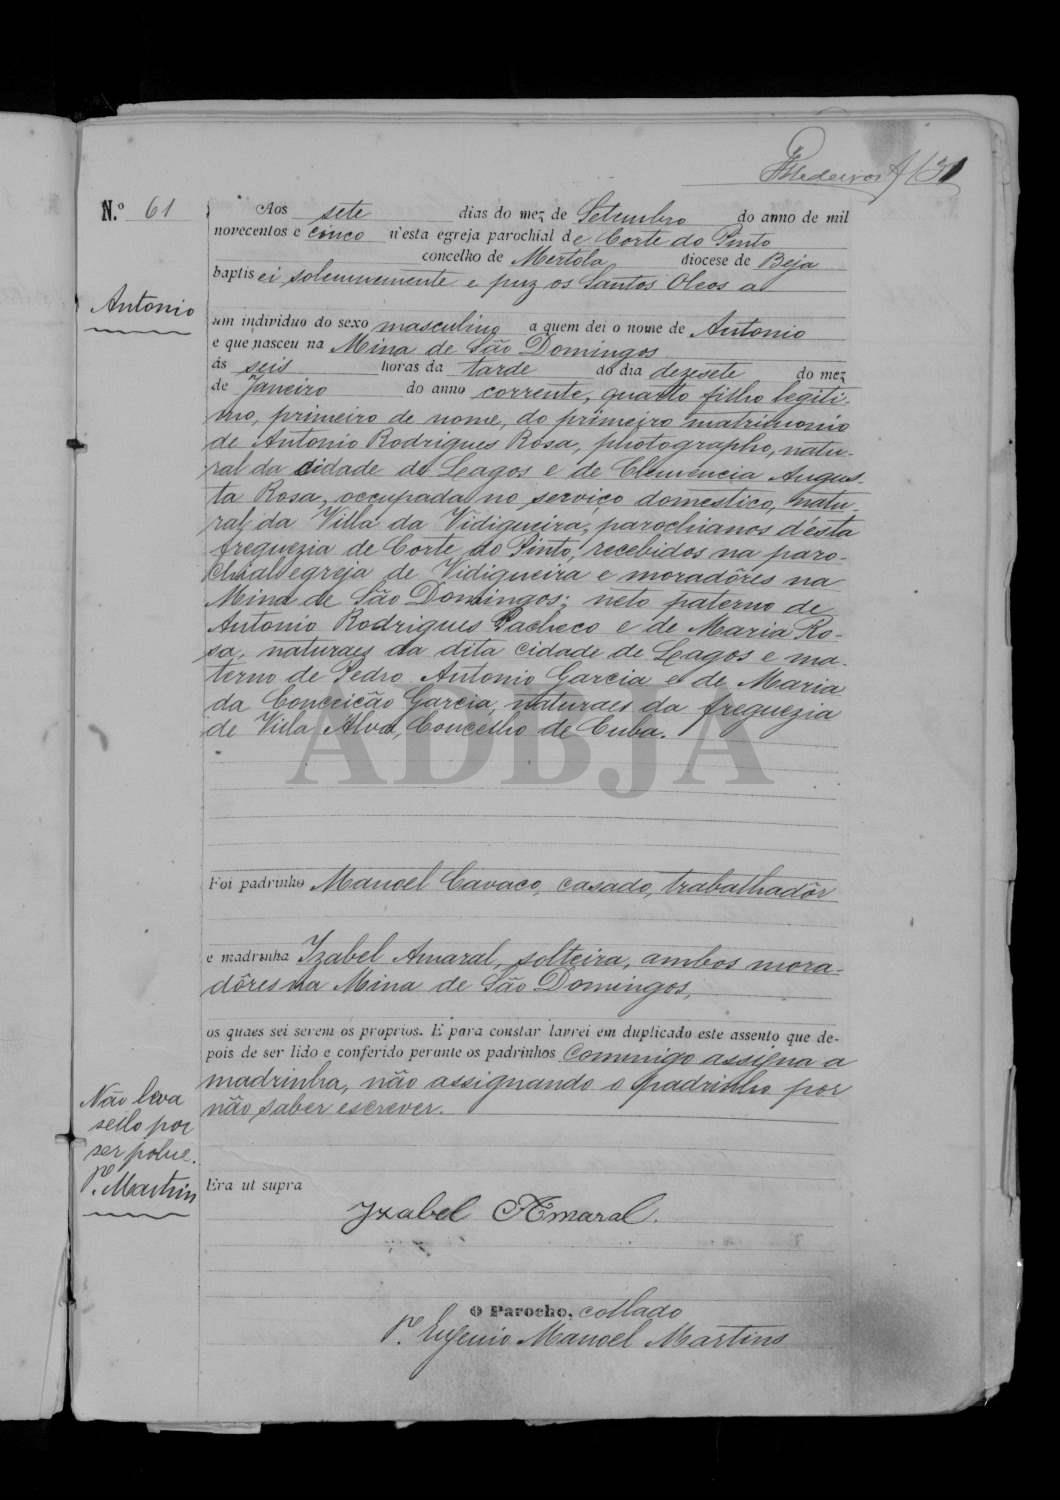 Medeiros
N.º 61
Aos sete dias do mez de Setembro do anno de mil
novecentos e cinco n'esta egreja parochial de Corte do Pinto
concelho de Mertola, diocese de Beja
baptisei solemnemente e puz os Santos Oleos a
Antonio
um individuo do sexo masculino a quem dei o nome de Antonio
e que nasceu na Mina de São Domingos
ás seis horas da tarde do dia dezesete do mez
de Janeiro do anno corrente, quarto filho legiti-
mo, primeiro de nome, do primeiro matrimonio
de Antonio Rodrigues Rosa, photographo, natu-
ral da cidade de Lagos e de Clemencia Augus-
ta Rosa, occupada no serviço domestico, natu-
ral da Villa da Vidigueira, parochianos d'esta
freguezia de Corte do Pinto, recebidos na paro-
chial egreja de Vidigueira e moradôres na
Mina de São Domingos; neto paterno de
Antonio Rodrigues Pacheco e de Maria Ro-
sa, naturaes da dita cidade de Lagos e ma-
terno de Pedro Antonio Garcia e de Maria
da Conceição Garcia, naturaes da freguezia
de Villa Alva, Concelho de Cuba.
ADBJA
Foi padrinho Manoel Cavaco, casado, trabalhadôr
e madrinha Izabel Amaral, solteira, ambos mora-
dôres na Mina de São Domingos,
os quaes sei serem os proprios. E para constar lavrei em duplicado este assento que de-
pois de ser lido e conferido perante os padrinhos commigo assigna a
madrinha, não assignando o padrinho por
não saber escrever.
Não leva
sello por
ser pobre.
P.e Martins
Era ut supra
Izabel Amaral.
O Parocho, collado
P.e Eugenio Manoel Martins